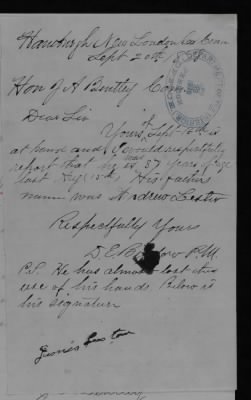 Hanburgh New London Co Conn
Sept 20th
Hon J A Bentley Com
Dear Sir
Yours of Sept 10th is
at hand and I would respectfully
report that he was 37 years of age
last July (15th) His fathers
name was Andrew Lester
Respectfully Yours
D. E. P.M.
P.S. He has almost lost the
use of his hands. Below is
his signature
Lester